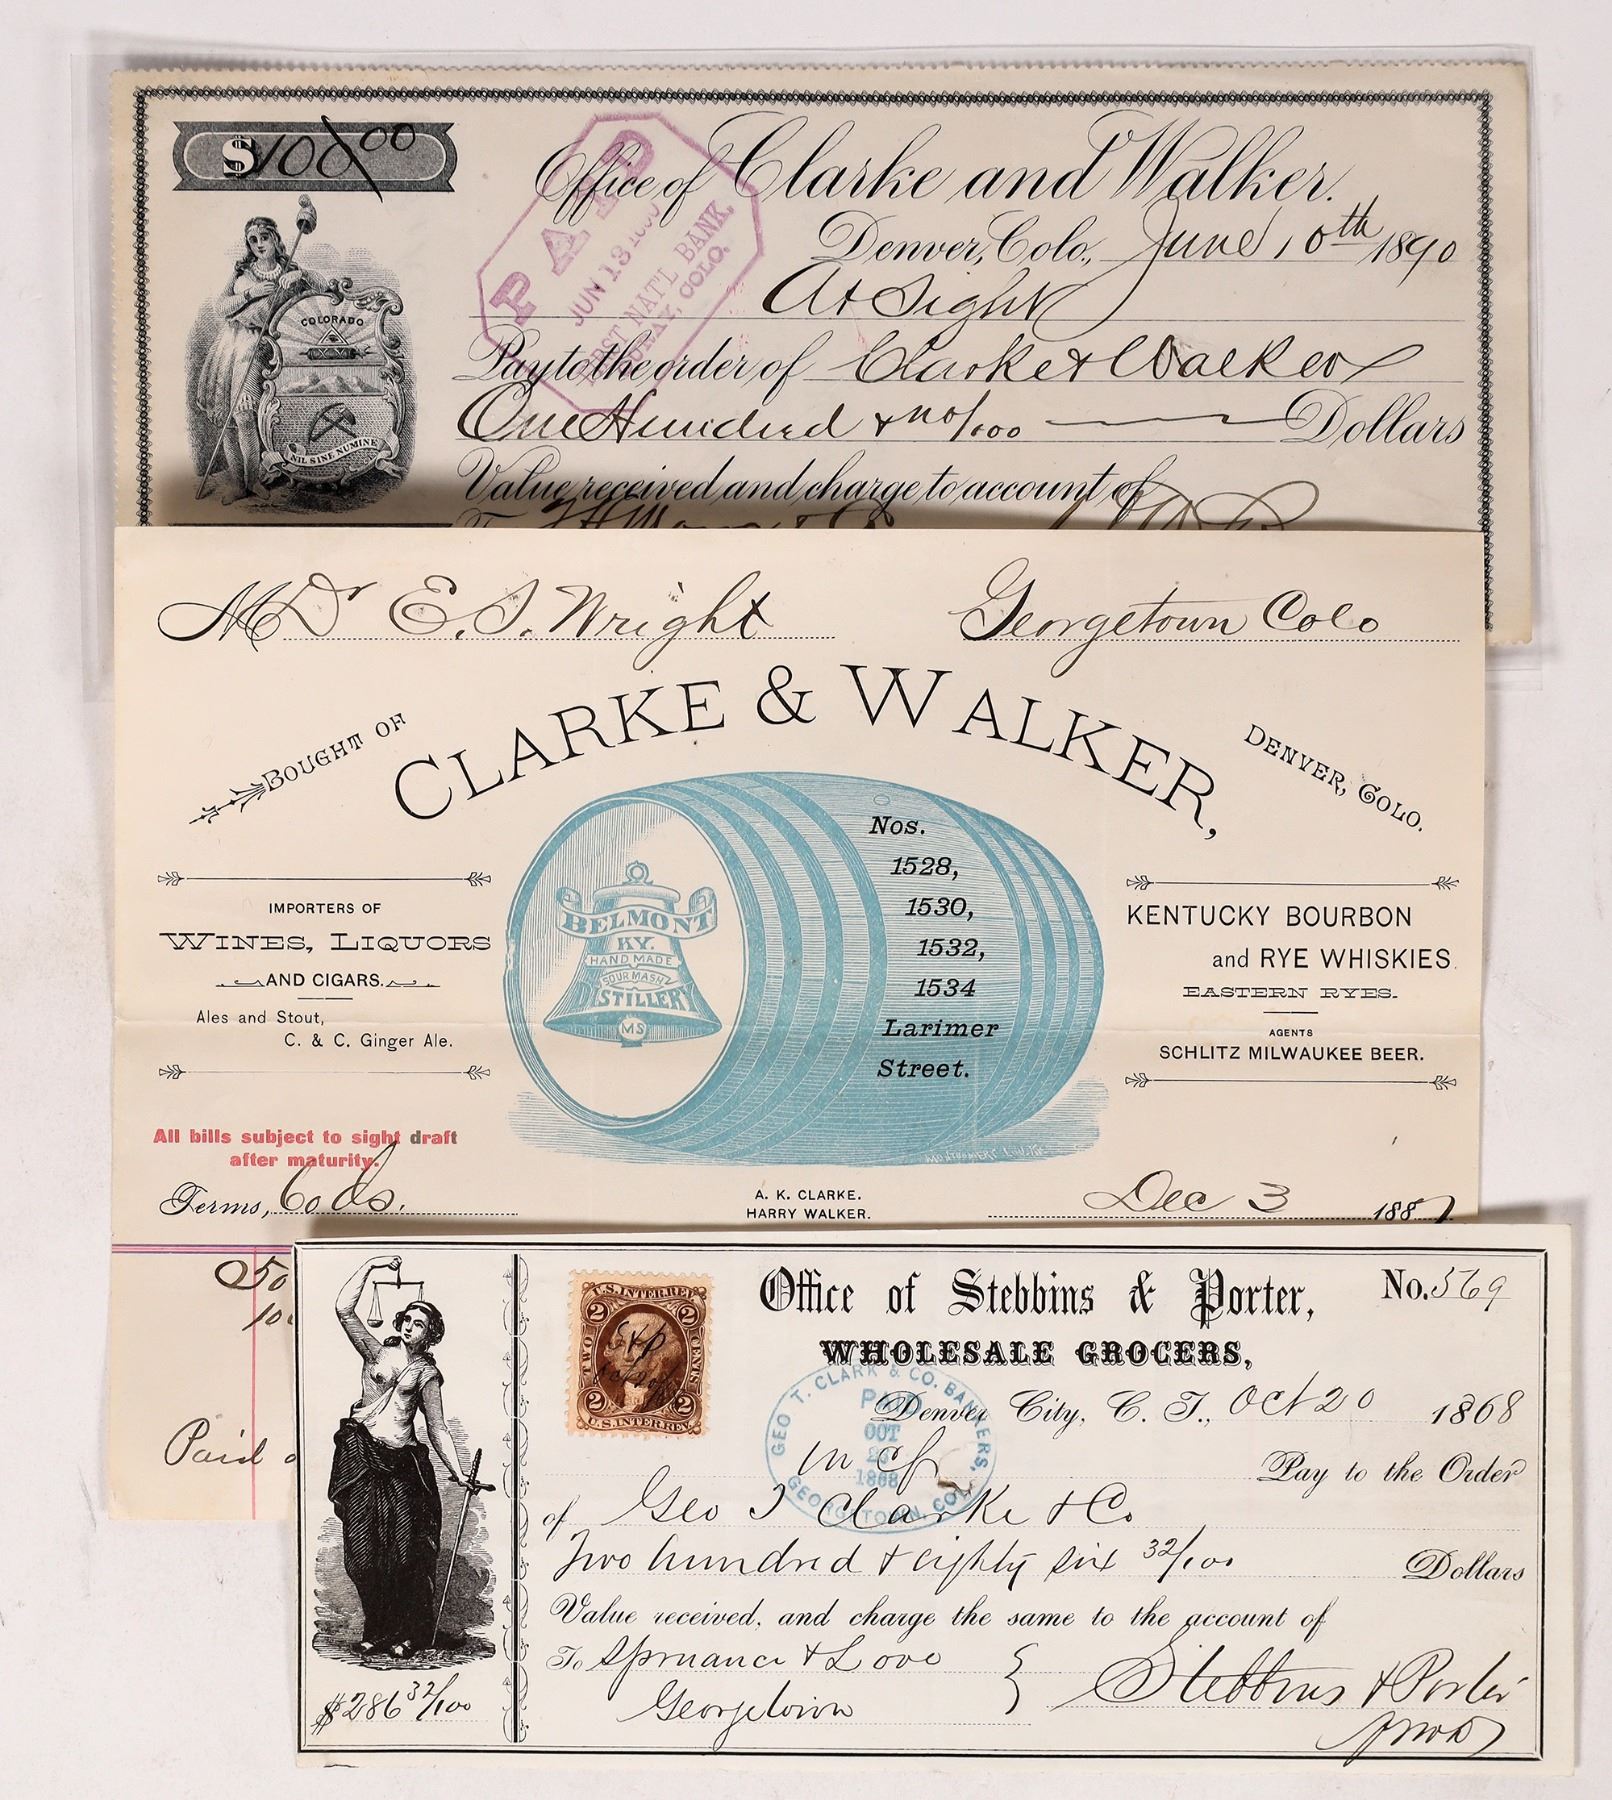 $100.00
Office of Clarke and Walker.
Denver, Colo., June 10th 1890
At Sight
PAID
JUN 13
NAT'L BANK,
COLO.
COLORADO
NIL SINE NUMINE
Pay to the order of Clarke & Walker
One Hundred & no/100 Dollars
Value received and charge to account of
M Dr E. S. Wright Georgetown Colo
BOUGHT OF
CLARKE & WALKER,
DENVER, COLO.
IMPORTERS OF
WINES, LIQUORS
AND CIGARS.
Ales and Stout,
C. & C. Ginger Ale.
BELMONT
KY.
HAND MADE
SOUR MASH
DISTILLERY
MS
Nos.
1528,
1530,
1532,
1534
Larimer
Street.
KENTUCKY BOURBON
and RYE WHISKIES
EASTERN RYES.
AGENTS
SCHLITZ MILWAUKEE BEER.
All bills subject to sight draft
after maturity.
Terms, 60 ds.
A. K. CLARKE.
HARRY WALKER.
Dec 3 1887
50
Paid
U.S. INTER. REV.
2 2
TWO CENTS
2 2
U.S. INTER. REV.
S & P
Oct 20
Office of Stebbins & Porter, No. 569
WHOLESALE GROCERS,
Denver City, C. T., Oct 20 1868
GEO T. CLARK & CO. BANKERS,
PAID
OCT
1868
GEORGETOWN, COL.
Pay to the Order
of Geo T Clark & Co
Two hundred & eighty six 32/100 Dollars
Value received, and charge the same to the account of
To Spruance & Love
Georgetown
Stebbins & Porter
$286 32/100